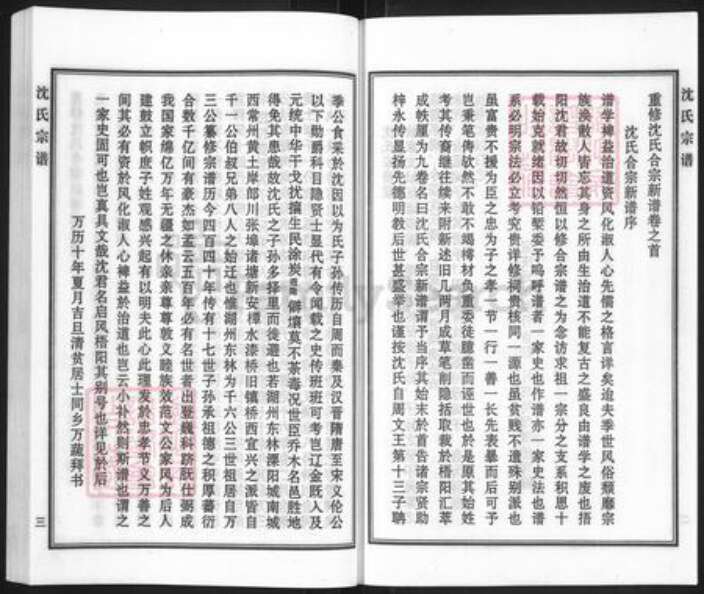 沈氏宗谱
重修沈氏合宗新谱卷之首
沈氏合宗新谱序
谱学裨益治道资风化淑人心先儒之格言详矣迨夫季世风俗颓靡宗
族涣散人皆忘其身之所由生治道不能复古之盛良由谱学之废也捂
阳沈君故切切然恒以修合宗谱之为念访求祖一宗分之支系积思十
载始克就绪因以铅椠委予呜呼谱者一家史也作谱亦一家史法也谱
系必明宗法必立考究贵详修祠贵核同一源也虽贫贱不遗殊别派也
虽富贵不援为臣之忠为子之孝一节一行一善一长先表暴而后可予
岂秉笔俦欤然不敢不竭樗材负重委徒臆凿而诬世也於是原其始姓
考其传裔继往续来附新述旧几两月成草笔削隐括取裁於梧阳汇萃
成帙厘为九卷名曰沈氏合宗新谱谓予当序其始末於首告诸宗贤助
梓永传显扬先德明教后世甚盛举也谨按沈氏自周文王第十三子聃
季公食采於沈因以为氏子孙传历自周而秦及汉晋隋唐至宋义伦公
以下勋爵科目隐贤士显代有令闻载之史传班班可考岂辽金既入及
元统中华干戈扰攘生民涂炭 僻壤莫不荼毒况世臣乔木名邑胜地
得免其患哉故沈氏之子孙多择里而徙避也若湖州东林溧阳城南城
西常州黄土岸郎川张埠诸塘新安樟水漆桥旧镇桥西宜兴之派皆自
千一公伯叔兄弟八人之始迁也惟湖州东林为千六公三世祖居自万
三公纂修宗谱历今四百四十年传有十七世子孙承祖德之积厚蕃衍
合数千亿间有豪杰如孟云五百年必有名世者出登巍科跻朊仕弼成
我国家绵亿万年无疆之休亲亲尊尊敦义睦族效范文公家风为后人
建鼓立帜庶子姓观感兴起有以明夫此心此理发於忠孝节义万善之
间其必有资於风化淑人心裨益於治道也岂云小补然则斯谱也谓之
一家史固可也岂真具文哉沈君名启风梧阳其别号也详见於后
万历十年夏月吉旦清贫居士同乡万蔬拜书
沈氏宗谱
三